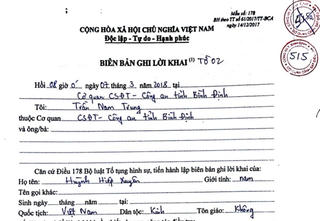 Mẫu số: 178
BH theo TT số 61/2017/TT-BCA
ngày 14/12/2017
CỘNG HÒA XÃ HỘI CHỦ NGHĨA VIỆT NAM
Độc lập - Tự do - Hạnh phúc
515
BIÊN BẢN GHI LỜI KHAI (1) Tờ 02
Hồi 08 giờ 0 ngày 07 tháng 3 năm 2018, tại
Cơ quan CSĐT - Công an tỉnh Bình Định
Tôi: Trần Nam Trung
thuộc Cơ quan CSĐT - Công an tỉnh Bình Định
và ông/bà:
Căn cứ Điều 178 Bộ luật Tố tụng hình sự, tiến hành lập biên bản ghi lời khai của:
Họ tên: Huỳnh Hiệp Xuyên Giới tính: nam
Tên gọi khác:
Sinh ngày tháng năm tại:
Quốc tịch: Việt Nam Dân tộc: Kinh Tôn giáo: Không